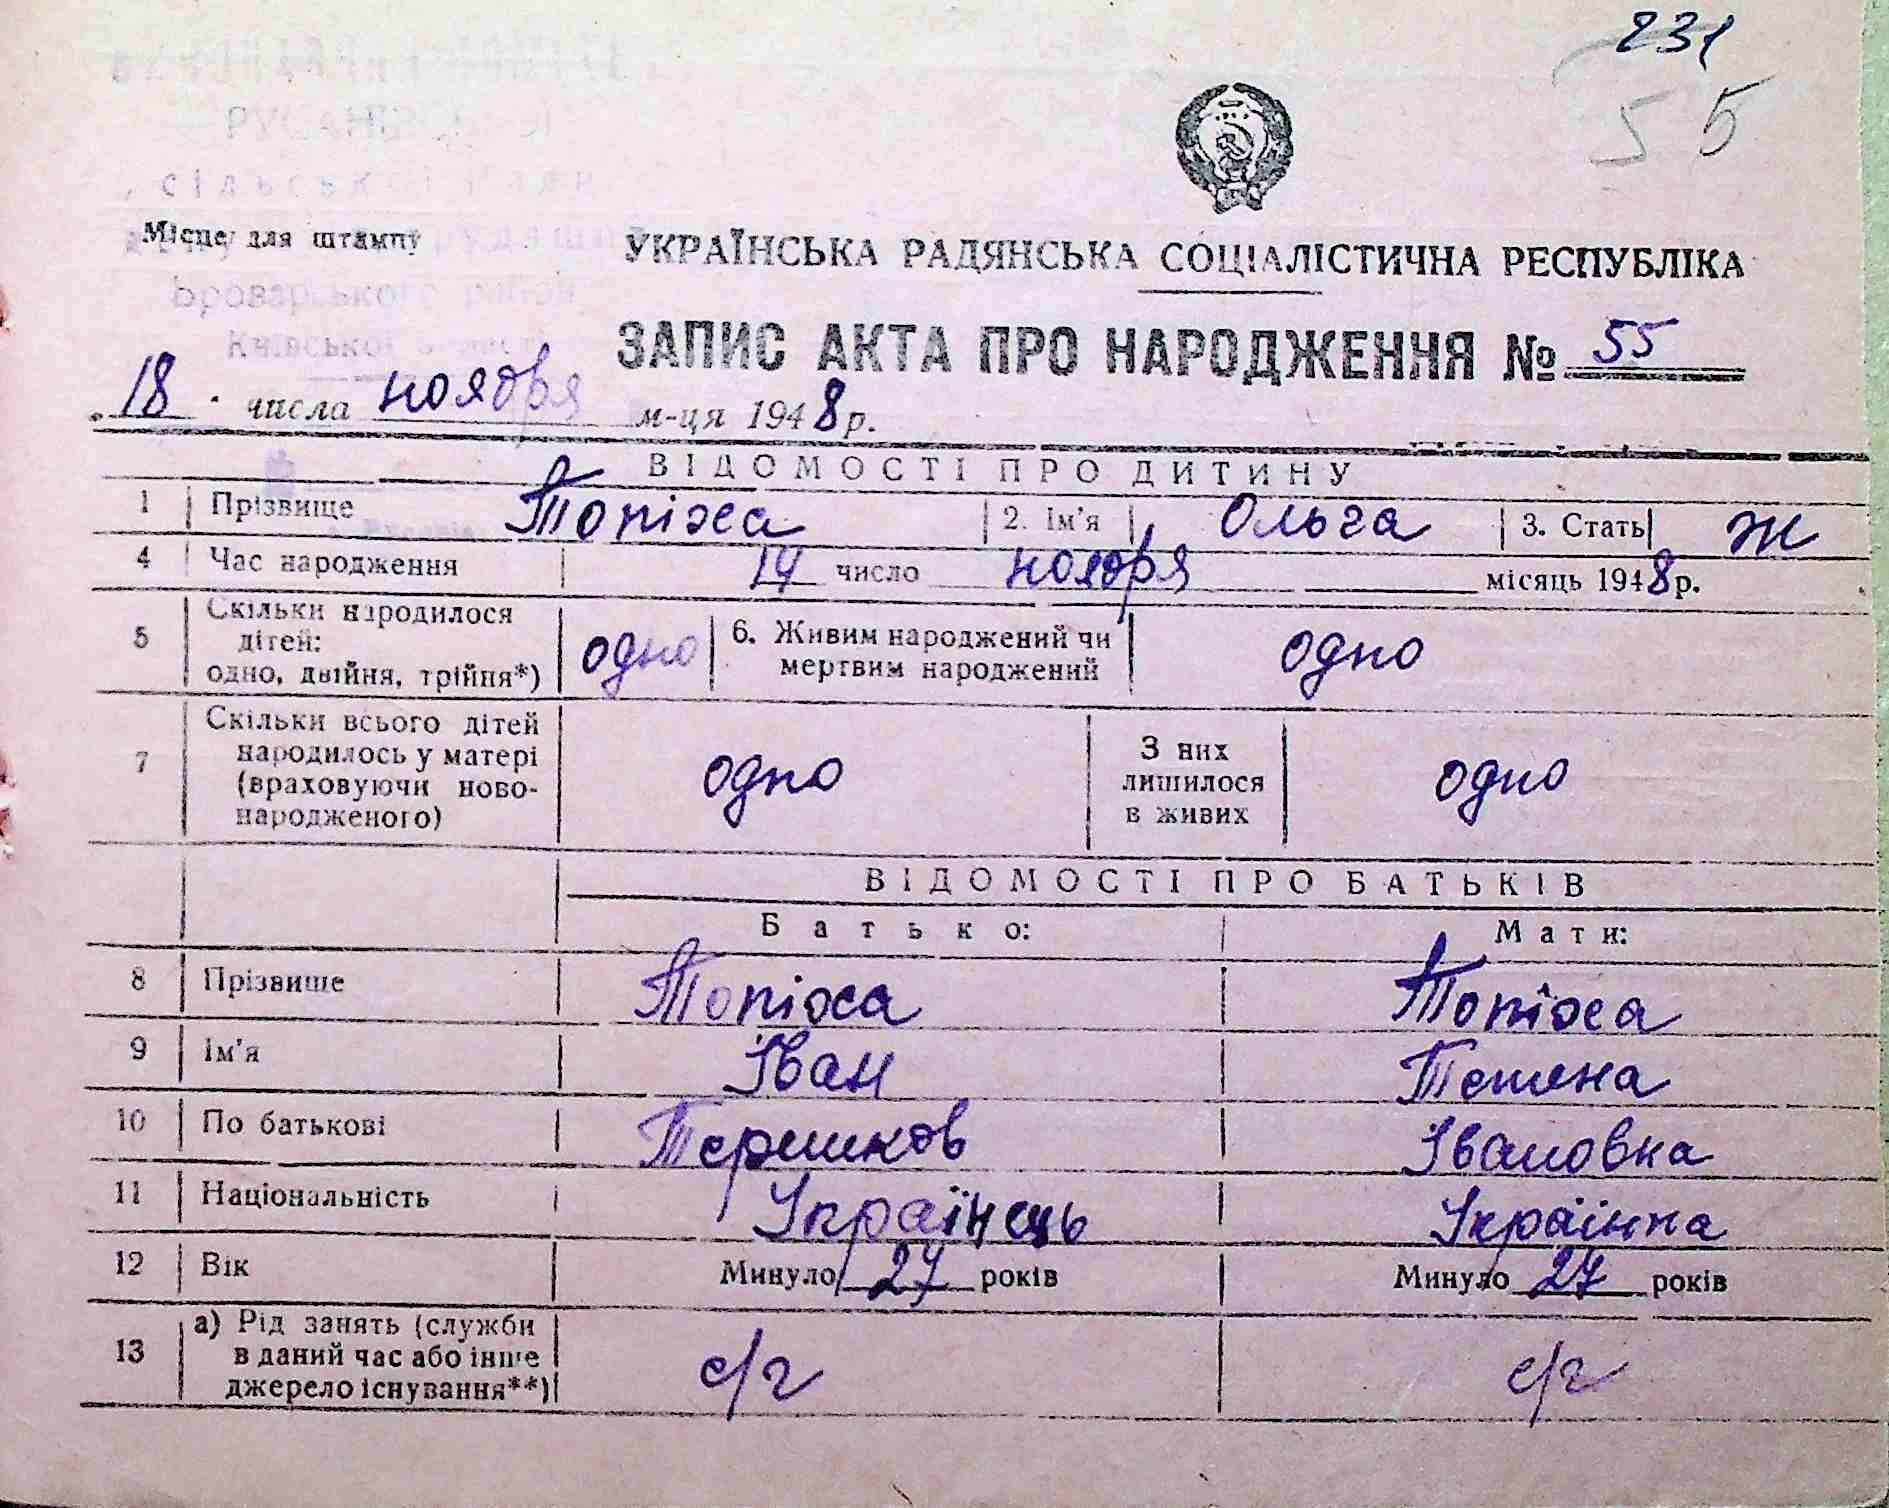 231
55
РУСАНІВСЬКОЇ
сільської ради
Місце для штампу
УКРАЇНСЬКА РАДЯНСЬКА СОЦІАЛІСТИЧНА РЕСПУБЛІКА
Броварського району
Київської
ЗАПИС АКТА ПРО НАРОДЖЕННЯ № 55
18 числа ноября м-ця 1948 р.
ВІДОМОСТІ ПРО ДИТИНУ
1 Прізвище Топіха 2. Ім'я Ольга 3. Стать Ж
4 Час народження 14 число ноября місяць 1948 р.
5 Скільки народилося дітей: одно, двійня, трійня*) одно 6. Живим народжений чи мертвим народжений одно
7 Скільки всього дітей народилось у матері (враховуючи ново-народженого) одно З них лишилося в живих одно
ВІДОМОСТІ ПРО БАТЬКІВ
Батько: Мати:
8 Прізвище Топіха Топіха
9 Ім'я Іван Тетяна
10 По батькові Терешков Івановна
11 Національність Українець Українка
12 Вік Минуло 27 років Минуло 27 років
13 а) Рід занять (служби в даний час або інше джерело існування**) с/г с/г